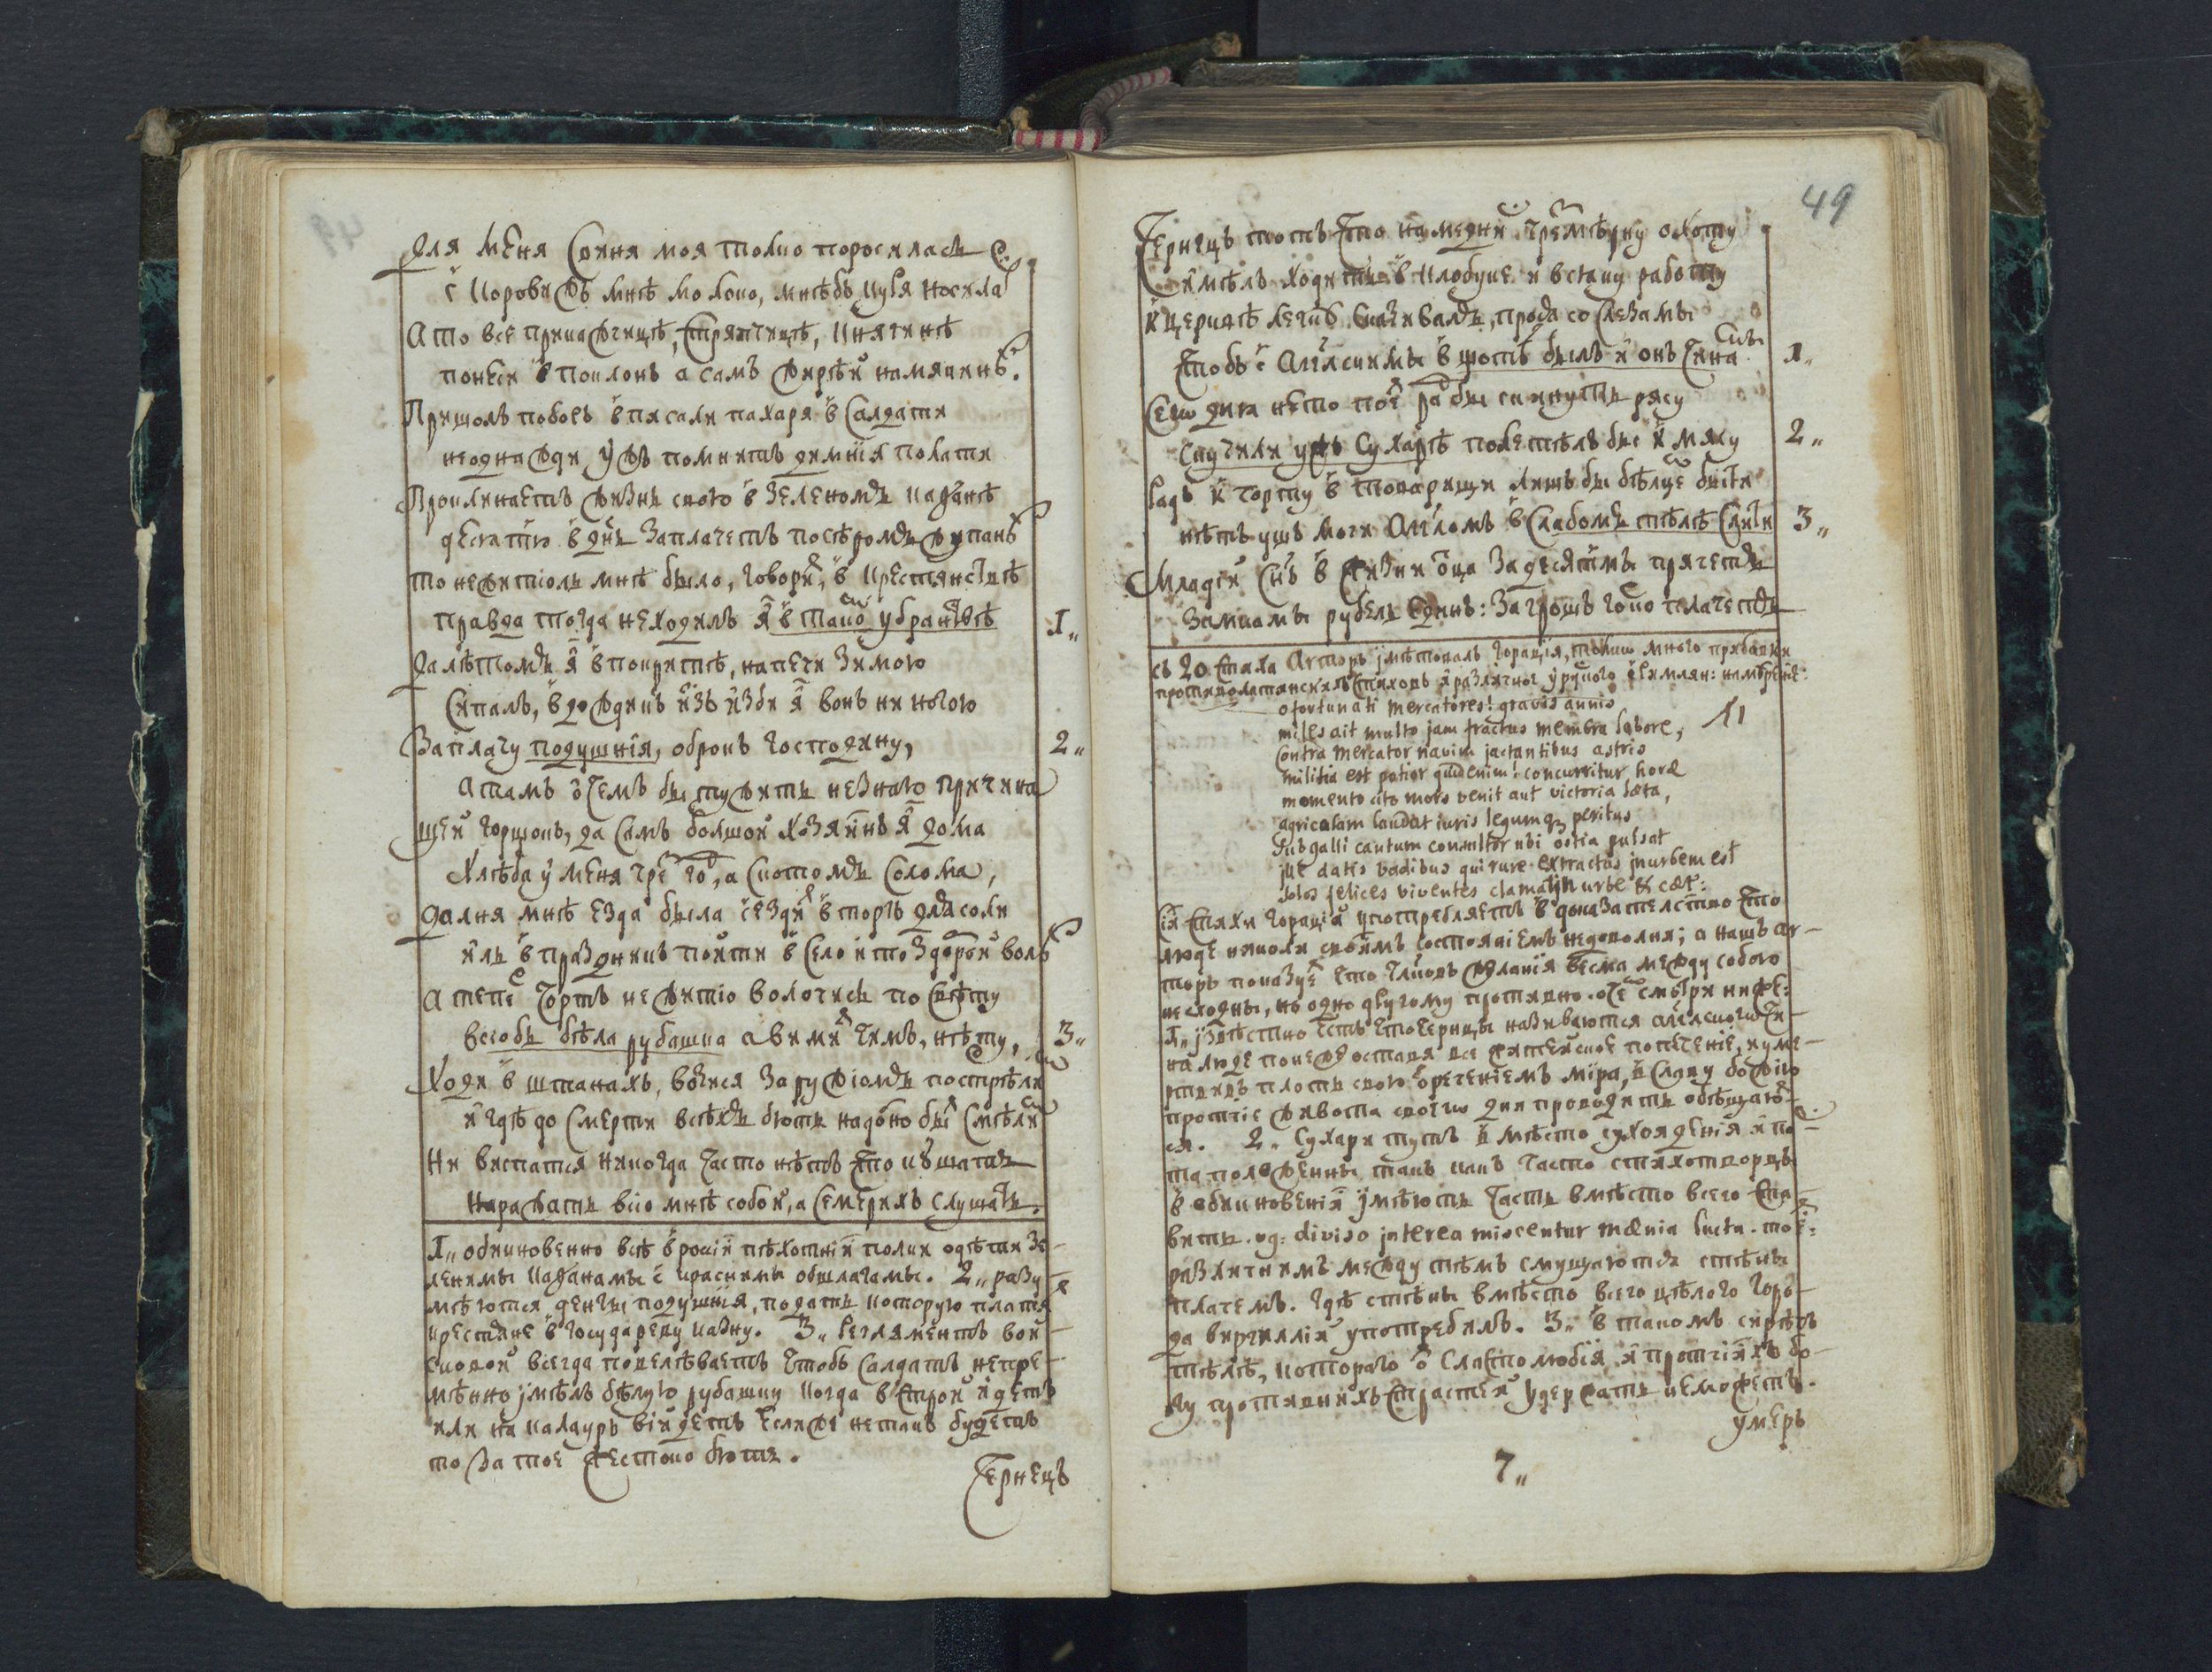 Для меня Свиня моя толко поросиласъ
с коровижъ мнѣ молоко, мнѣбъ куря носила
А то все приказчицѣ, стряпчицѣ, Княгинѣ
понеси в поклонъ а самъ жирѣй намякинѣ.
Пришолъ поборъ вписали пахаря в Салдати
неоднажди ужъ помнитъ димнія полати
Проклинаетъ жизнь свою в зеленомъ кафтанѣ
десятию в днь заплачетъ посѣромъ жупанѣ
то нежитіоль мнѣ было, говори, в крестянствѣ
правда тогда неходилъ я в тако убранствѣ 1„
Да лѣтомъ я в покритѣ, напечи зимою
Сипалъ, в дождикъ изъ изби я вонъ ни ногою
Заплачу подушнія, оброкъ господину, 2„
А тамъ о чемъ бы тужить незнаю причина
щей горшокъ, да самъ болшой хозяинъ я дома
Хлѣба у меня чре го, а скотомъ солома,
далня мнѣ езда была сезди в торгъ для соли
иль в праздникъ пойти в село и то здоброй воли
А тепе чортъ нежитіо волочись по свѣту
всіобъ бѣла рубашка авими чимъ, нѣту, 3„
Ходи в штанахъ, возися за ружіомъ пострѣли
и гдѣ до смерти всѣхъ бютъ надобно бы смѣли
Ни виспатся никогда часто нѣтъ что кушать
Наражать всіо мнѣ собой, а семерихъ слушать.
1„ обикновенно всѣ в росіи пѣхотніи полки одѣти зе-
ленимы кафтанамы с красними обшлагамы. 2„ разу-
мѣются денги подушнія, подать которую платя
крестяне в государеву казну. 3„ Регламентъ вои-
сковой всегда повелѣваетъ чтобъ салдатъ непре-
мѣнно имѣлъ бѣлую рубашку когда в строй идетъ
или на калауръ війдетъ Еслиже нетакъ будетъ
то за тое жестоко бютъ.
Чернецъ
49
Чернецъ тотъ что намедни чремѣрну охоту
имѣлъ ходить в клобуке и всяку работу
к церквѣ легкѣ сказивалъ, прося со слезами
чтобъ с ангелскимы в щотъ былъ и онъ чинами 1„
Сего дня нето пое рабы скинуть рясу
скучили ужъ сухарѣ полетѣлъ бы к мясу 2„
Радъ к чорту в товарищи лишъ бы бѣлцемъ быти
нѣтъ ушъ мочи ангеломъ в слабомъ тѣлѣ слити 3„
Младій снъ в жизни оца за десятимъ прячетъ
замкамы рубель единъ: за грошъ горко плачетъ
съ 20 стиха Авторъ имѣтовалъ Горація, токмо много прибавки
противолатинскихъ стиховъ и различное у рускаго с Римлян: намѣреніе:
o fortunati mercatores! gravis annis
miles ait multo jam fractus membra labore,
Contra mercator navim jactantibus astris
militia est potior quid enim! concurritur horæ
momento cito mors venit aut victoria læta,
agricolam laudat iuris legumq3 peritus
Sub galli cantum consultor ubi ostia pulsat
jlle datis vadibus qui rure extractus jn urbem est
solos felices viventes clamat jn urbe & cæt:
Сіи стихи Горацій употребляетъ в доказателство что
люде николи своимъ состояніемъ недоволни; а нашъ ав-
торъ показуе что члковъ желанія весма между собою
несходны, но одно другому противно. о че смотри ниже:
1„ извѣстно есть что черицы називаются ангелскаго чи-
на люде понеже оставя все житейское попеченіе, и уме-
ртвивъ плоть свою отреченіемъ міра, в славу божію
протчіе живота своего дни проводить обѣщаю-
ся. 2„ Сухари тутъ в мѣсто сухояденія и по-
та положенны такъ какъ часто стихотворцы
в обикновеніи имѣютъ часть вмѣсто всего ста-
вить. яд: diviso jnterea miscentur mænia luctu. то е:
различнимъ между тѣмъ смущаютъ стѣны
плачемъ. гдѣ стѣны вмѣсто всего цѣлого горо-
да виргиллій употребилъ. 3„ в такомъ сирѣчъ
тѣлѣ, котораго о сластолюбія и протчіихъ бо-
гу противнихъ страстей удержать неможетъ.
умеръ
7„